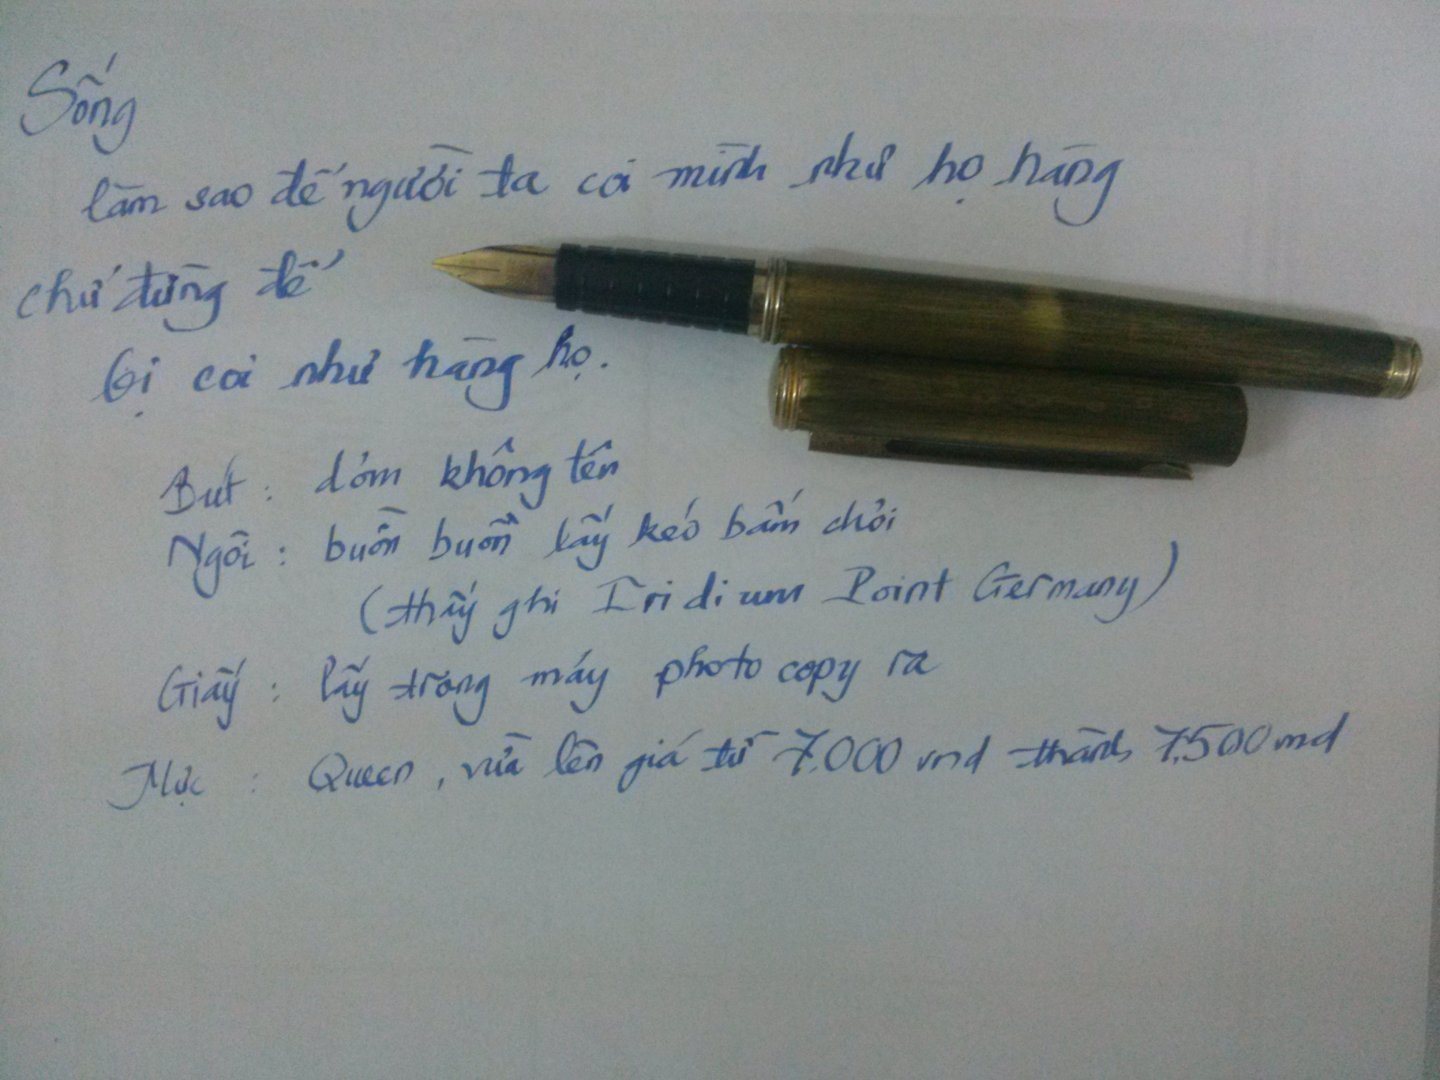 Sống
làm sao để người ta coi mình như họ hàng
chứ đừng để
bị coi như hàng họ.
Bút : dỏm không tên
Ngòi : buồn buồn lấy kéo bấm chơi
(thấy ghi Iridium Point Germany)
Giấy : lấy trong máy photocopy ra
Mực : Queen, vừa lên giá từ 7.000 vnd thành 7,500 vnd